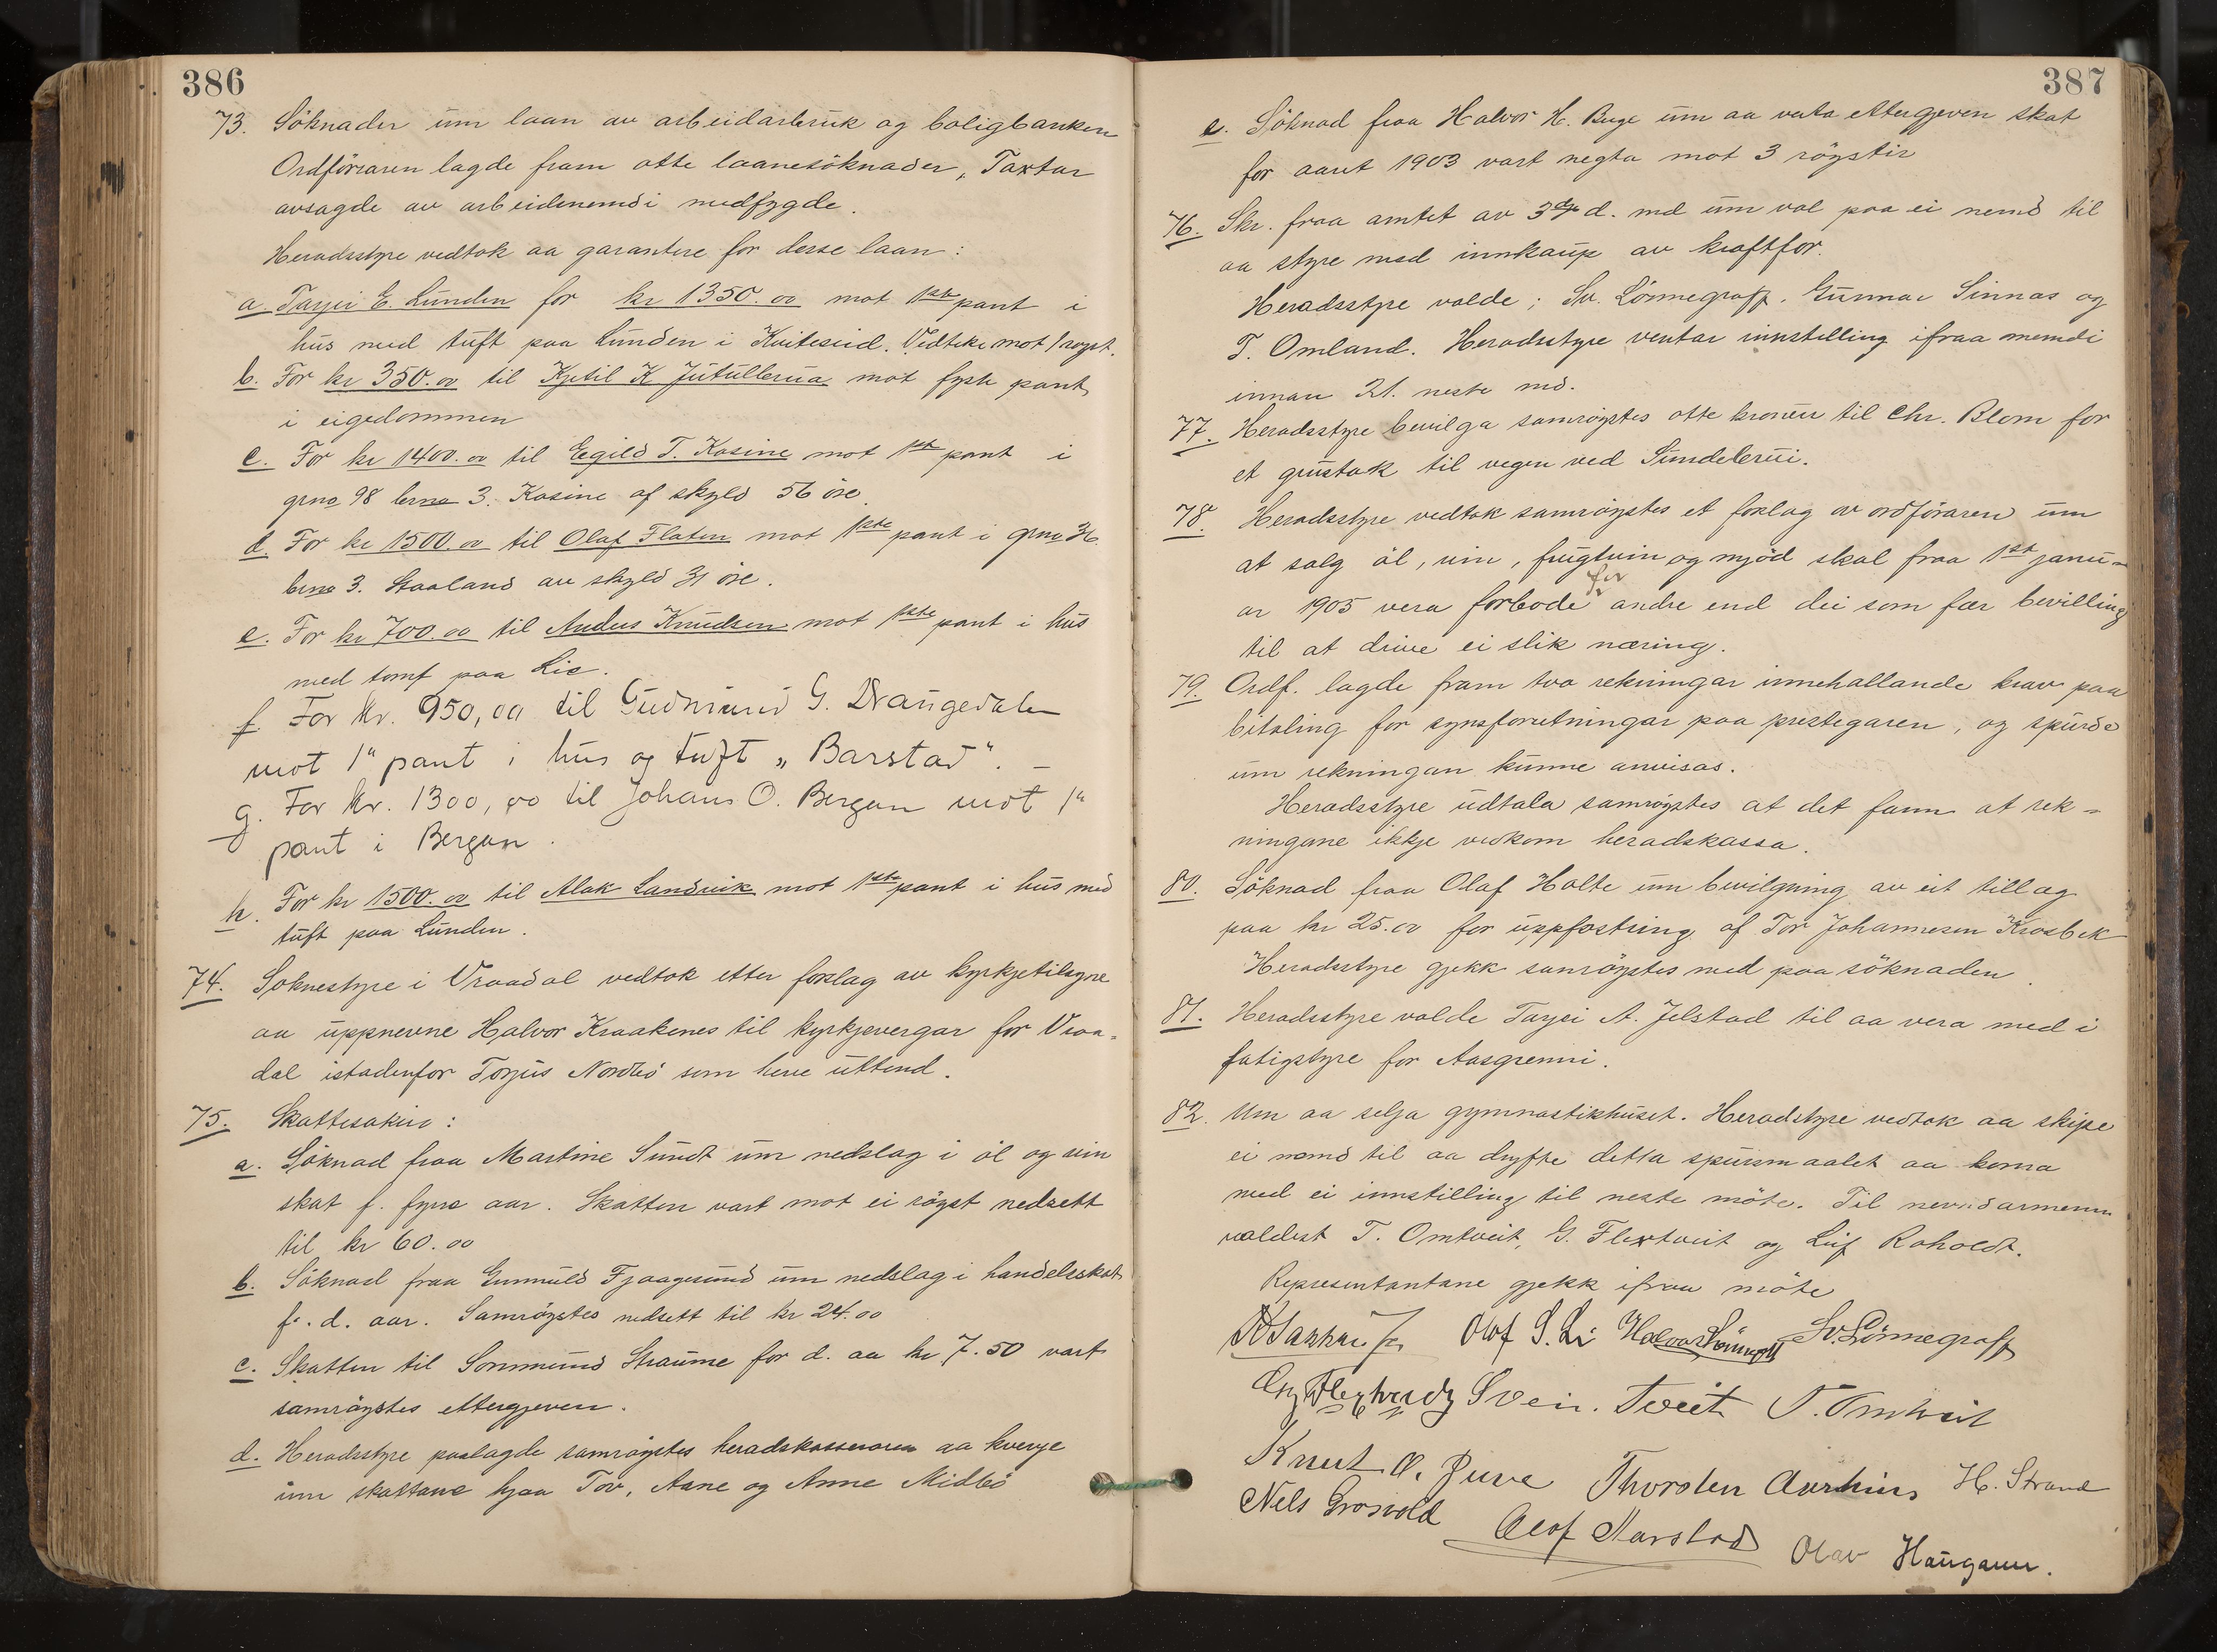 386
73. Söknader um laan av arbeidarbruk og boligbanken
Ordföraren lagde fram otte laanesöknader, Taxtar
avsagde av arbeidenemdi medfygde.
Heradsstyre vedtok aa garantere for desse laan:
a. Tarjei E. Lunden for kr 1350.00 mot 1ste pant i
hus med tuft paa Lunden i Kviteseid. Vedteke mot 1 røyst.
b. For kr 350.00 til Kjetil K Jutullerua mot fyste pant
i eigedommen
c. For kr 1400.00 til Eegild T. Kosine mot 1ste pant i
grno 98 brno 3. Kosine af skyld 56 öre.
d. For kr 1500.00 til Olaf Flaten mot 1ste pant i grno 36.
brno 3. Staaland av skyld 31 öre.
e. For kr 700.00 til Anders Knudsen mot 1ste pant i hus
med tomt paa Lie.
f. For kr. 950,00 til Gudmund G. Drangedalen
mot 1" pant i hus og tuft „Barstad". –
g. For kr. 1300,00 til Johans O. Bergan mot 1"
pant i Bergan.
h. For kr 1500.00 til Alak Landvik mot 1ste pant i hus med
tuft paa Lunden.
74. Soknestyre i Vraadal vedtok etter forslag av kyrkjetilsyne
aa uppnevne Halvor Kraakenes til kyrkjevergar for Vraa-
dal istadenfor Torjus Nordbö som heve uttend.
75. Skattesakir:
a. Söknad fraa Martine Sundt um nedslag i öl og vin
skat f. fyrre aar. Skatten vart mot ei röyst nedsett
til kr 60.00
b. Söknad fraa Gunnuld Fjaagesund um nedslag i handelsskat
f. d. aar. Samröystes nedsett til kr 24.00
c. Skatten til Sommund Straume for d. aa kr 7.50 vart
samröystes ettergjeven.
d. Heradsstyre paalagde samröystes heradskasseraren aa kverje
inn skattane hjaa Tov, Aane og Anne Midbö
387
e. Söknad fraa Halvor H. Buge um aa verta ettergjeven skat
for aaret 1903 vart negta mot 3 röystir
76. Skr. fraa amtet av 3dje d. md um val paa ei nemd til
aa styre med innkaup av kraftfor.
Heradsstyre valde; Sv. Lönnegraff. Gunnar Sinnas og
T. Omland. Heradsstyre ventar innstelling ifraa nemdi
innan 21. neste md.
77. Heradsstyre bevilga samröystes otte kronur til Chr. Blom for
et grustak til vegen ved Sundebrui.
78. Heradsstyre vedtok samröystes et forslag av ordföraren um
at salg öl, vin, frugtvin og mjöd skal fraa 1ste janu-
ar 1905 vera forbode for andre end dei som fær bevilling
til at drive ei slik næring.
79. Ordf. lagde fram two rekningar innehallande krav paa
bitaling for synsforretningar paa prestegaren, og spurde
um rekningan kunne anvisas.
Heradsstyre udtala samröystes at det fann at rek-
ningane ikkje vedkom heradskassa.
80. Söknad fraa Olaf Holte um bevilgning av eit tillag
paa kr 25.00 for uppfostring af Tor Johannesen Krosbek
Heradsstyre gjekk samröystes med paa söknaden.
81. Heradsstyre valde Tarjei A. Jelstad til aa vera med i
fatigstyre for Aasgrenni.
82. Um aa selja gymnastikhuset. Heradstyre vedtok aa skipe
ei nemd til aa dryfte detta spursmaalet aa koma
med ei innstilling til neste möte. Til nemdarmenn
valdest T. Omtveit, G. Flextveit og Leif Roholdt.
Representantane gjekk ifraa möte
Olof S. Li Halvor Lönnegraff Sv. Lönnegraff
Svein. Tveit T. Omtveit
Knut O. Juve Thorsten Aurhus H. Strand
Nels Grosvold Olof Narstad Olav Haugann.